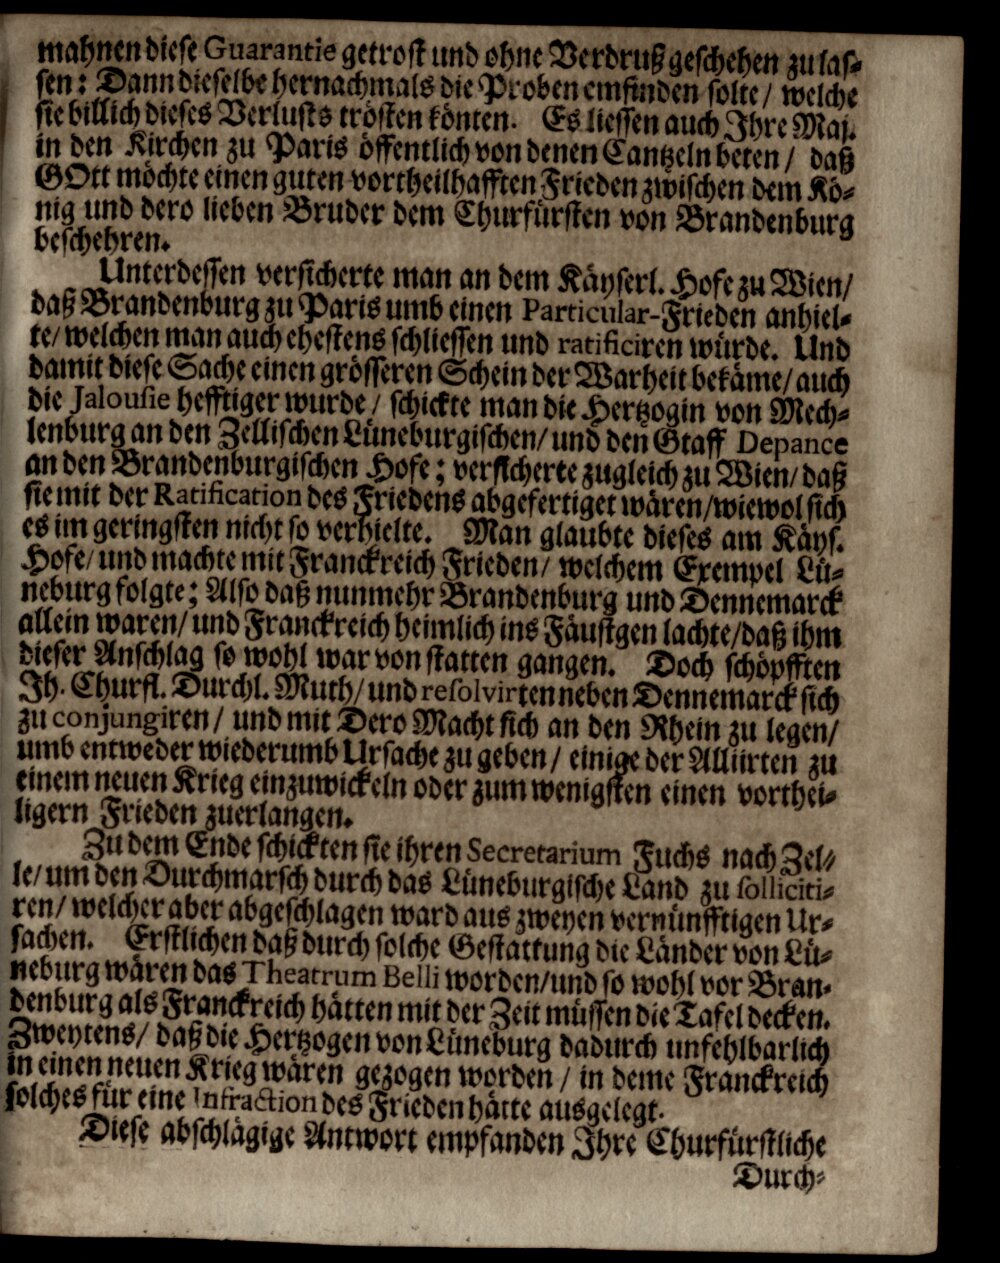 mahnen diese Guarantie getrost und ohne Verdruß geschehen zu las-
sen: Dann dieselbe hernachmals die Proben emfinden solte/ welche
sie billich dieses Verlusts trösten könten. Es liessen auch Ihre Maj.
in den Kirchen zu Paris öffentlich von denen Cantzeln beten/ daß
GOtt möchte einen guten vortheilhafften Frieden zwischen dem Kö-
nig und dero lieben Bruder dem Churfürsten von Brandenburg
beschehren.
Unterdessen versicherte man an dem Käyserl. Hofe zu Wien/
daß Brandenburg zu Paris umb einen Particular-Frieden anhiel-
te/ welchen man auch ehestens schliessen und ratificiren würde. Und
damit diese Sache einen grösseren Schein der Warheit bekäme/ auch
die Jalousie hefftiger wurde/ schickte man die Hertzogin von Mech-
lenburg an den Zellischen Lüneburgischen/ und den Graff Depance
an den Brandenburgischen Hofe; versicherte zugleich zu Wien/ daß
sie mit der Ratification des Friedens abgefertiget wären/ wiewol sich
es im geringsten nicht so verhielte. Man glaubte dieses am Käys.
Hofe/ und machte mit Franckreich Frieden/ welchem Exempel Lü-
neburg folgte; Also daß nunmehr Brandenburg und Dennemarck
allein waren/ und Franckreich heimlich ins Fäustgen lachte/ daß ihm
dieser Anschlag so wohl war von statten gangen. Doch schöpfften
Ih. Churfl. Durchl. Muth/ und resolvirten neben Dennemarck sich
zu conjungiren/ und mit Dero Macht sich an den Rhein zu legen/
umb entweder wiederumb Ursache zu geben/ einige der Alliirten zu
einem neuen Krieg einzuwickeln oder zum wenigsten einen vorthei-
ligern Frieden zuerlangen.
Zu dem Ende schickten sie ihren Secretarium Fuchs nach Zel-
le/ um den Durchmarsch durch das Lüneburgische Land zu solliciti-
ren/ welcher aber abgeschlagen ward aus zweyen vernünfftigen Ur-
sachen. Erstlichen daß durch solche Gestattung die Länder von Lü-
neburg wären das Theatrum Belli worden/ und so wohl vor Bran-
denburg als Franckreich hätten mit der Zeit müssen die Tafel decken.
Zweytens/ daß die Hertzogen von Lüneburg dadurch unfehlbarlich
in einen neuen Krieg wären gezogen worden/ in deme Franckreich
solches für eine Infraction des Frieden hätte ausgelegt.
Diese abschlägige Antwort empfanden Ihre Churfürstliche
Durch-